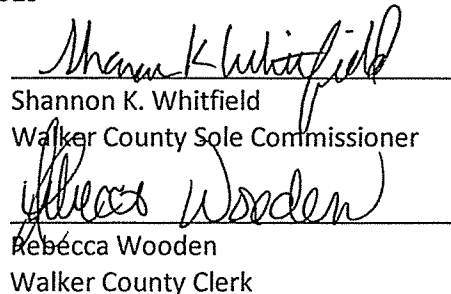 Shannon K Whitfield
Shannon K. Whitfield
Walker County Sole Commissioner
Rebecca Wooden
Rebecca Wooden
Walker County Clerk